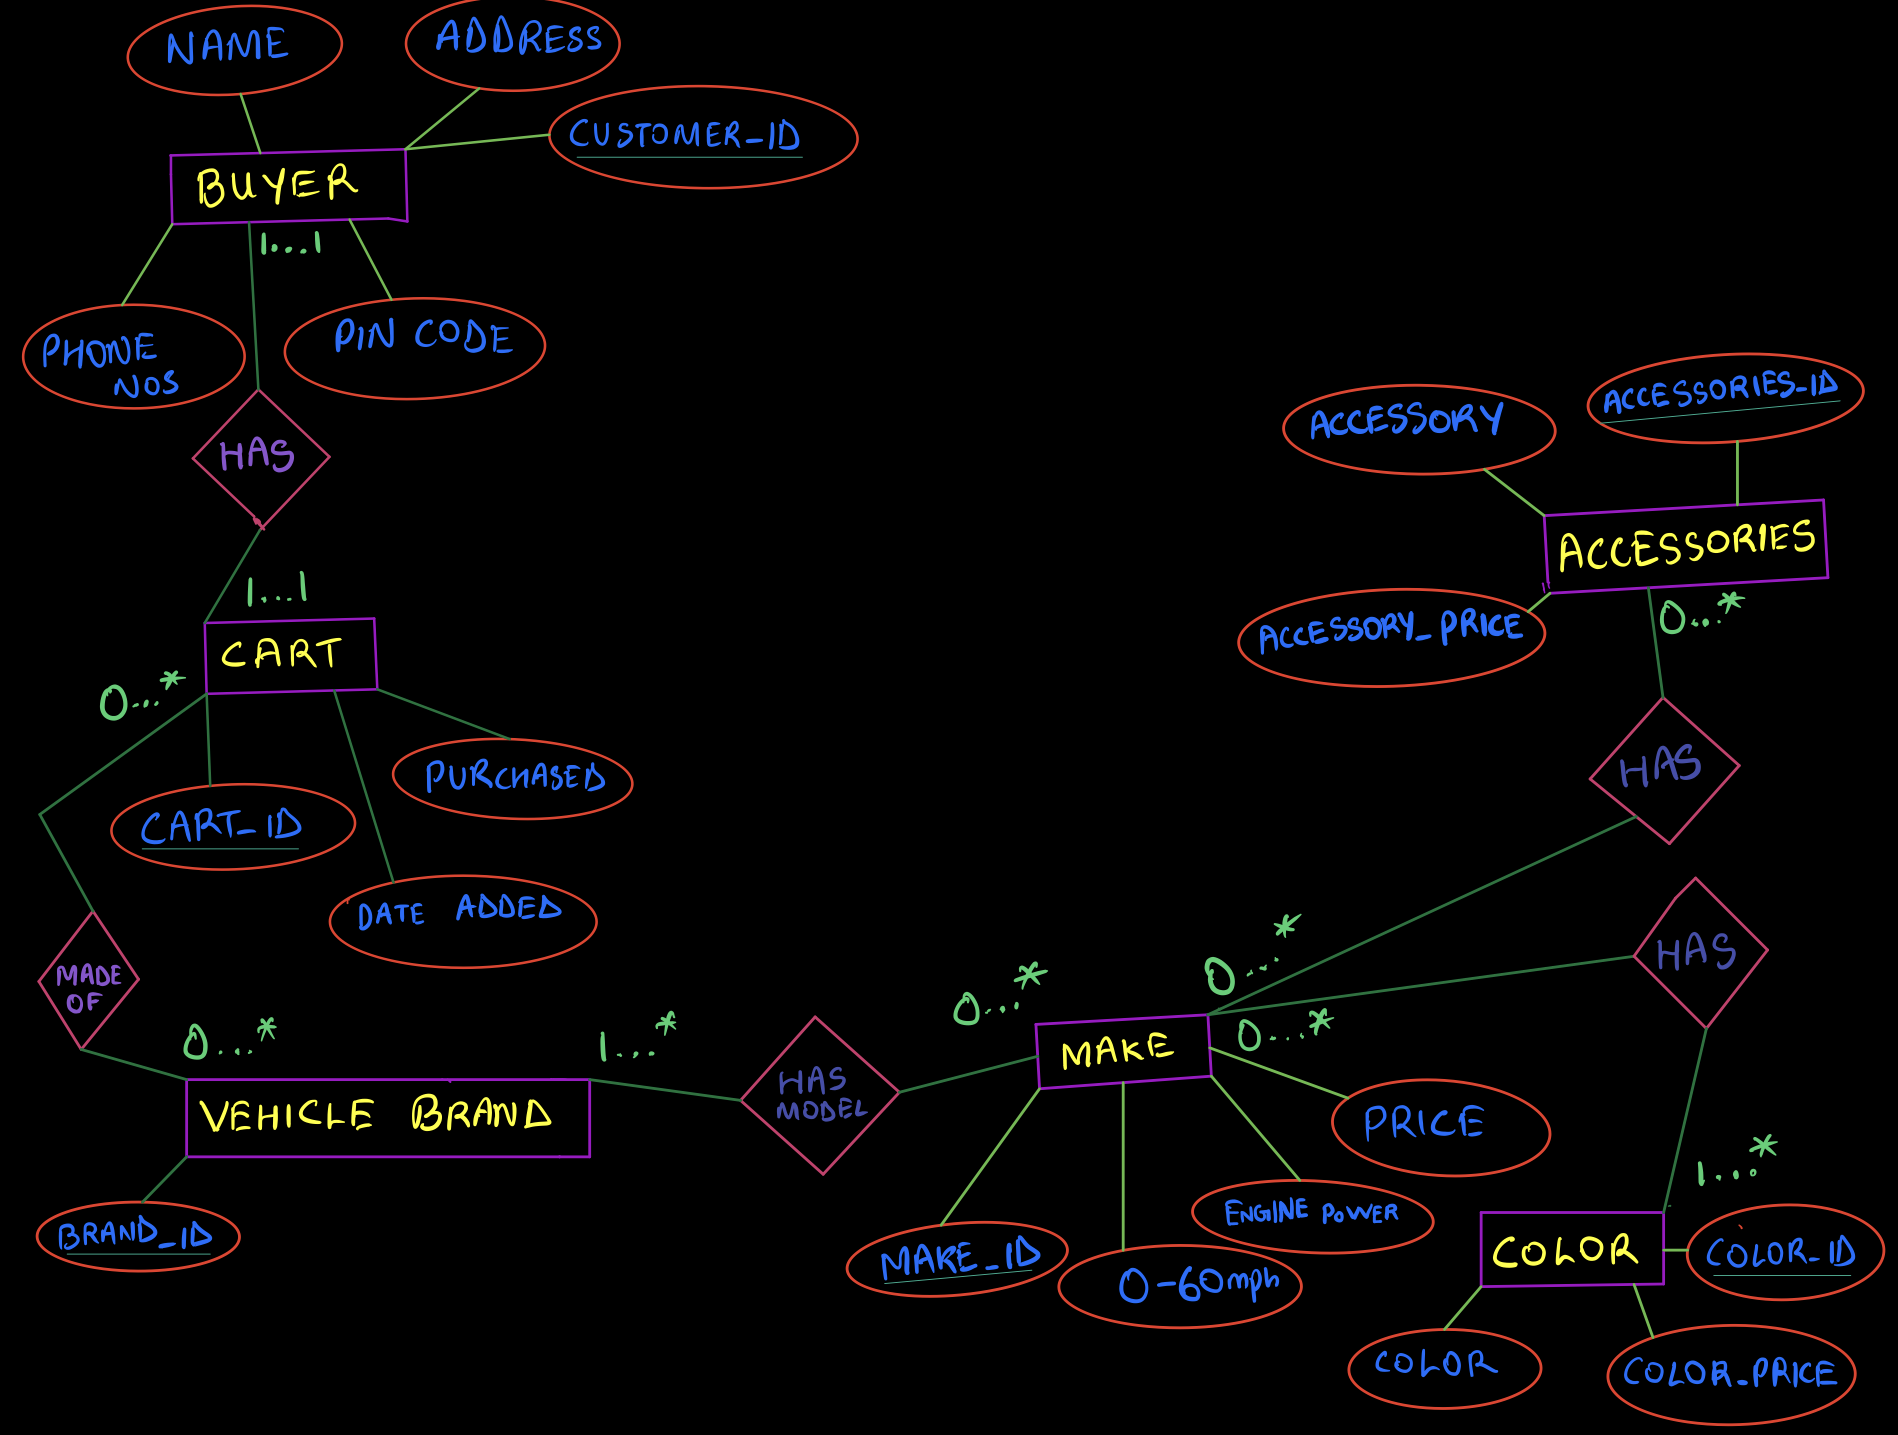 NAME
ADDRESS
CUSTOMER_ID
BUYER
1...1
PHONE
NOS
PIN CODE
HAS
1...1
CART
0...*
PURCHASED
CART_ID
DATE ADDED
MADE
OF
0...*
VEHICLE BRAND
BRAND_ID
1...*
HAS
MODEL
0...*
MAKE
0....*
0...*
PRICE
ENGINE POWER
MAKE_ID
0-60mph
ACCESSORY
ACCESSORIES_ID
ACCESSORIES
ACCESSORY_PRICE
0...*
HAS
HAS
1...*
COLOR
COLOR_ID
COLOR
COLOR_PRICE